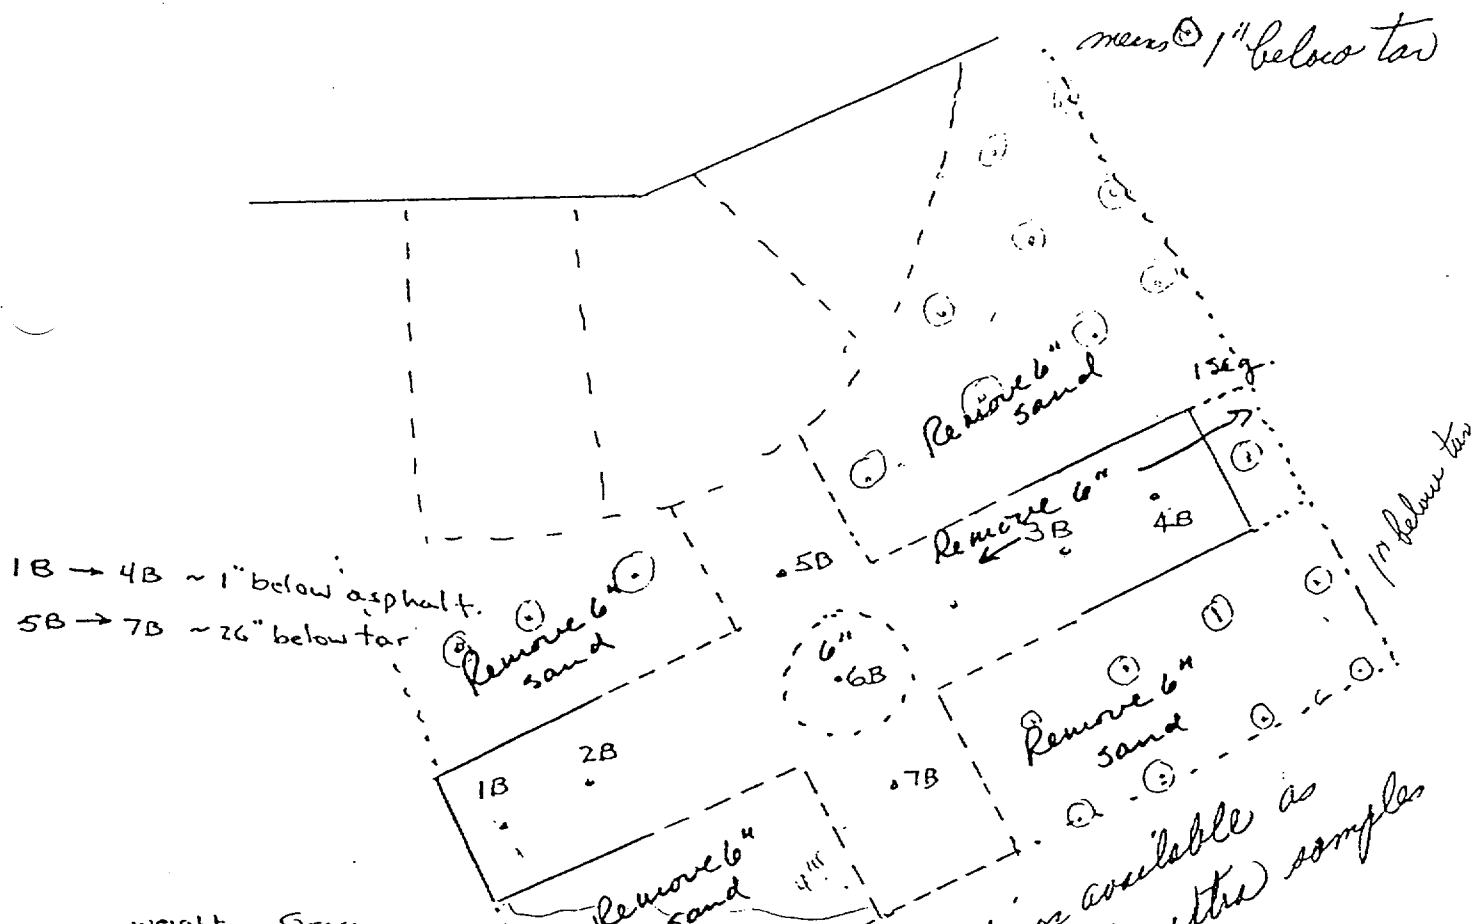 means ⊙ 1" below tar
1 seg.
Remove 6"
sand
Remove 6"
3B
4B
1" below tar
5B
1B → 4B ~ 1" below asphalt.
5B → 7B ~ 26" below tar
Remove 6"
sand
6"
6B
Remove 6"
sand
2B
1B
7B
Remove 6"
sand
4"
available as
extra samples
weight